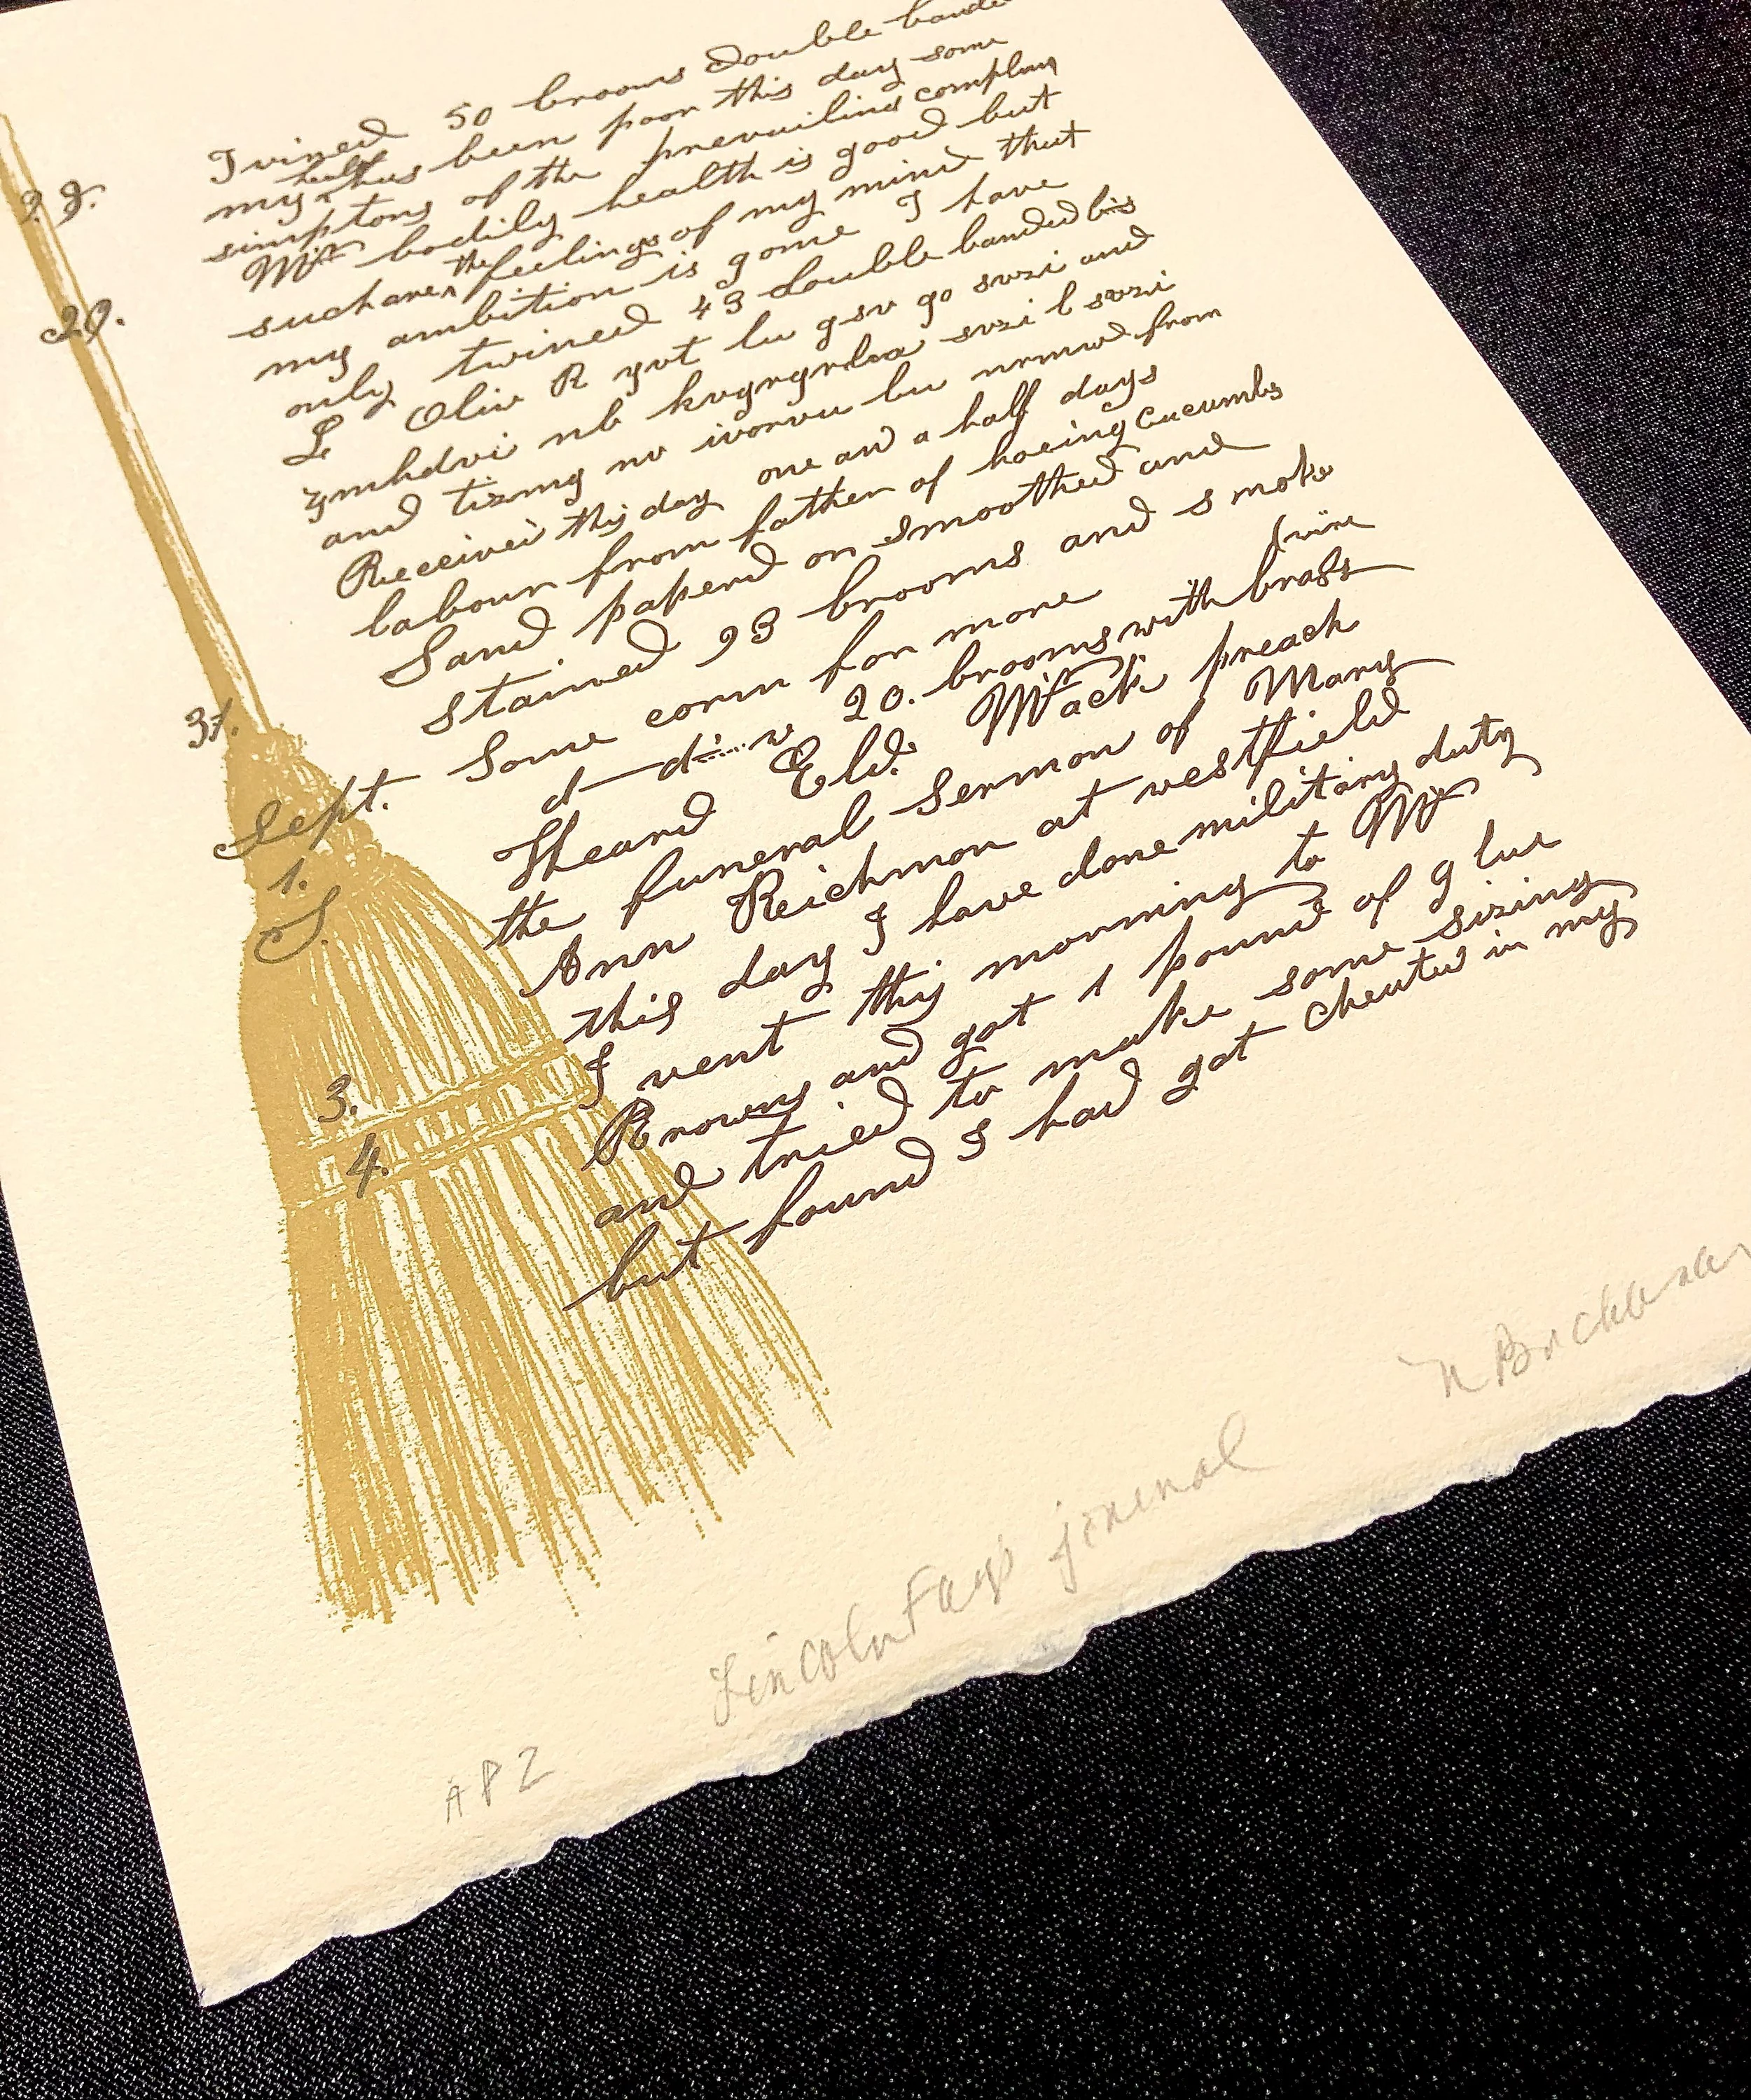 Twined 50 brooms double
28. my health has been poor this day some
simptons of the prevailing complan
My bodily health is good but
29. such are the feelings of my mind that
my ambition is gone I have
only twined 43 double banded bis
L Oliv R yvt lu gsv go svzi and
zmhdvi nb kvgrgrlm svzi l svzi
and tizmg nv ivorvu lu nrmwd from
Receivei this day one and a half days
labour from father of hoeing Cucumbs
Sand paperd on smoothed and
31. stained 93 brooms and smoke
Some corn for more
20. brooms with brass
Sept. 1. S. Heard Eld. Mack preach
the funeral sermon of Mary
Ann Reichmon at westfield
3. this day I have done military duty
4. I went this morning to Mr
Browns and got 1 pound of glue
and tried to make some sizing
but found I had got cheated in my
AP2 Lincoln Fay's journal